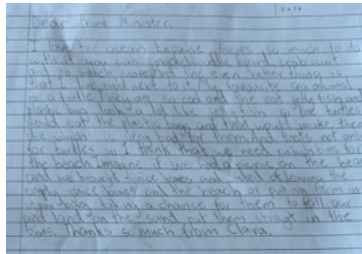 DATE
Dear Prime Minister,
I love the ocean because theres so much to do
with it you can
and so much more. And the even better thing is
that I live right next to it. My favourite sea animal
is a turtle they are so cool and she eat jelly fish and
plastic bags look a lot like jelly fish so the turtles
eat the plastic bag and that might make them
die which is really bad that mermaid tails not good
for turtles so I think that we need rubbish bins for
the beach. Imagine if we had a picnic on the beach
and we brought juice boxes and insted of leaving the
empty juice boxes on the beach or puting them in
your bag taking a chance for them to fall out
and land on the sand put them straigt in the
bins. Thanks so much from Clara.